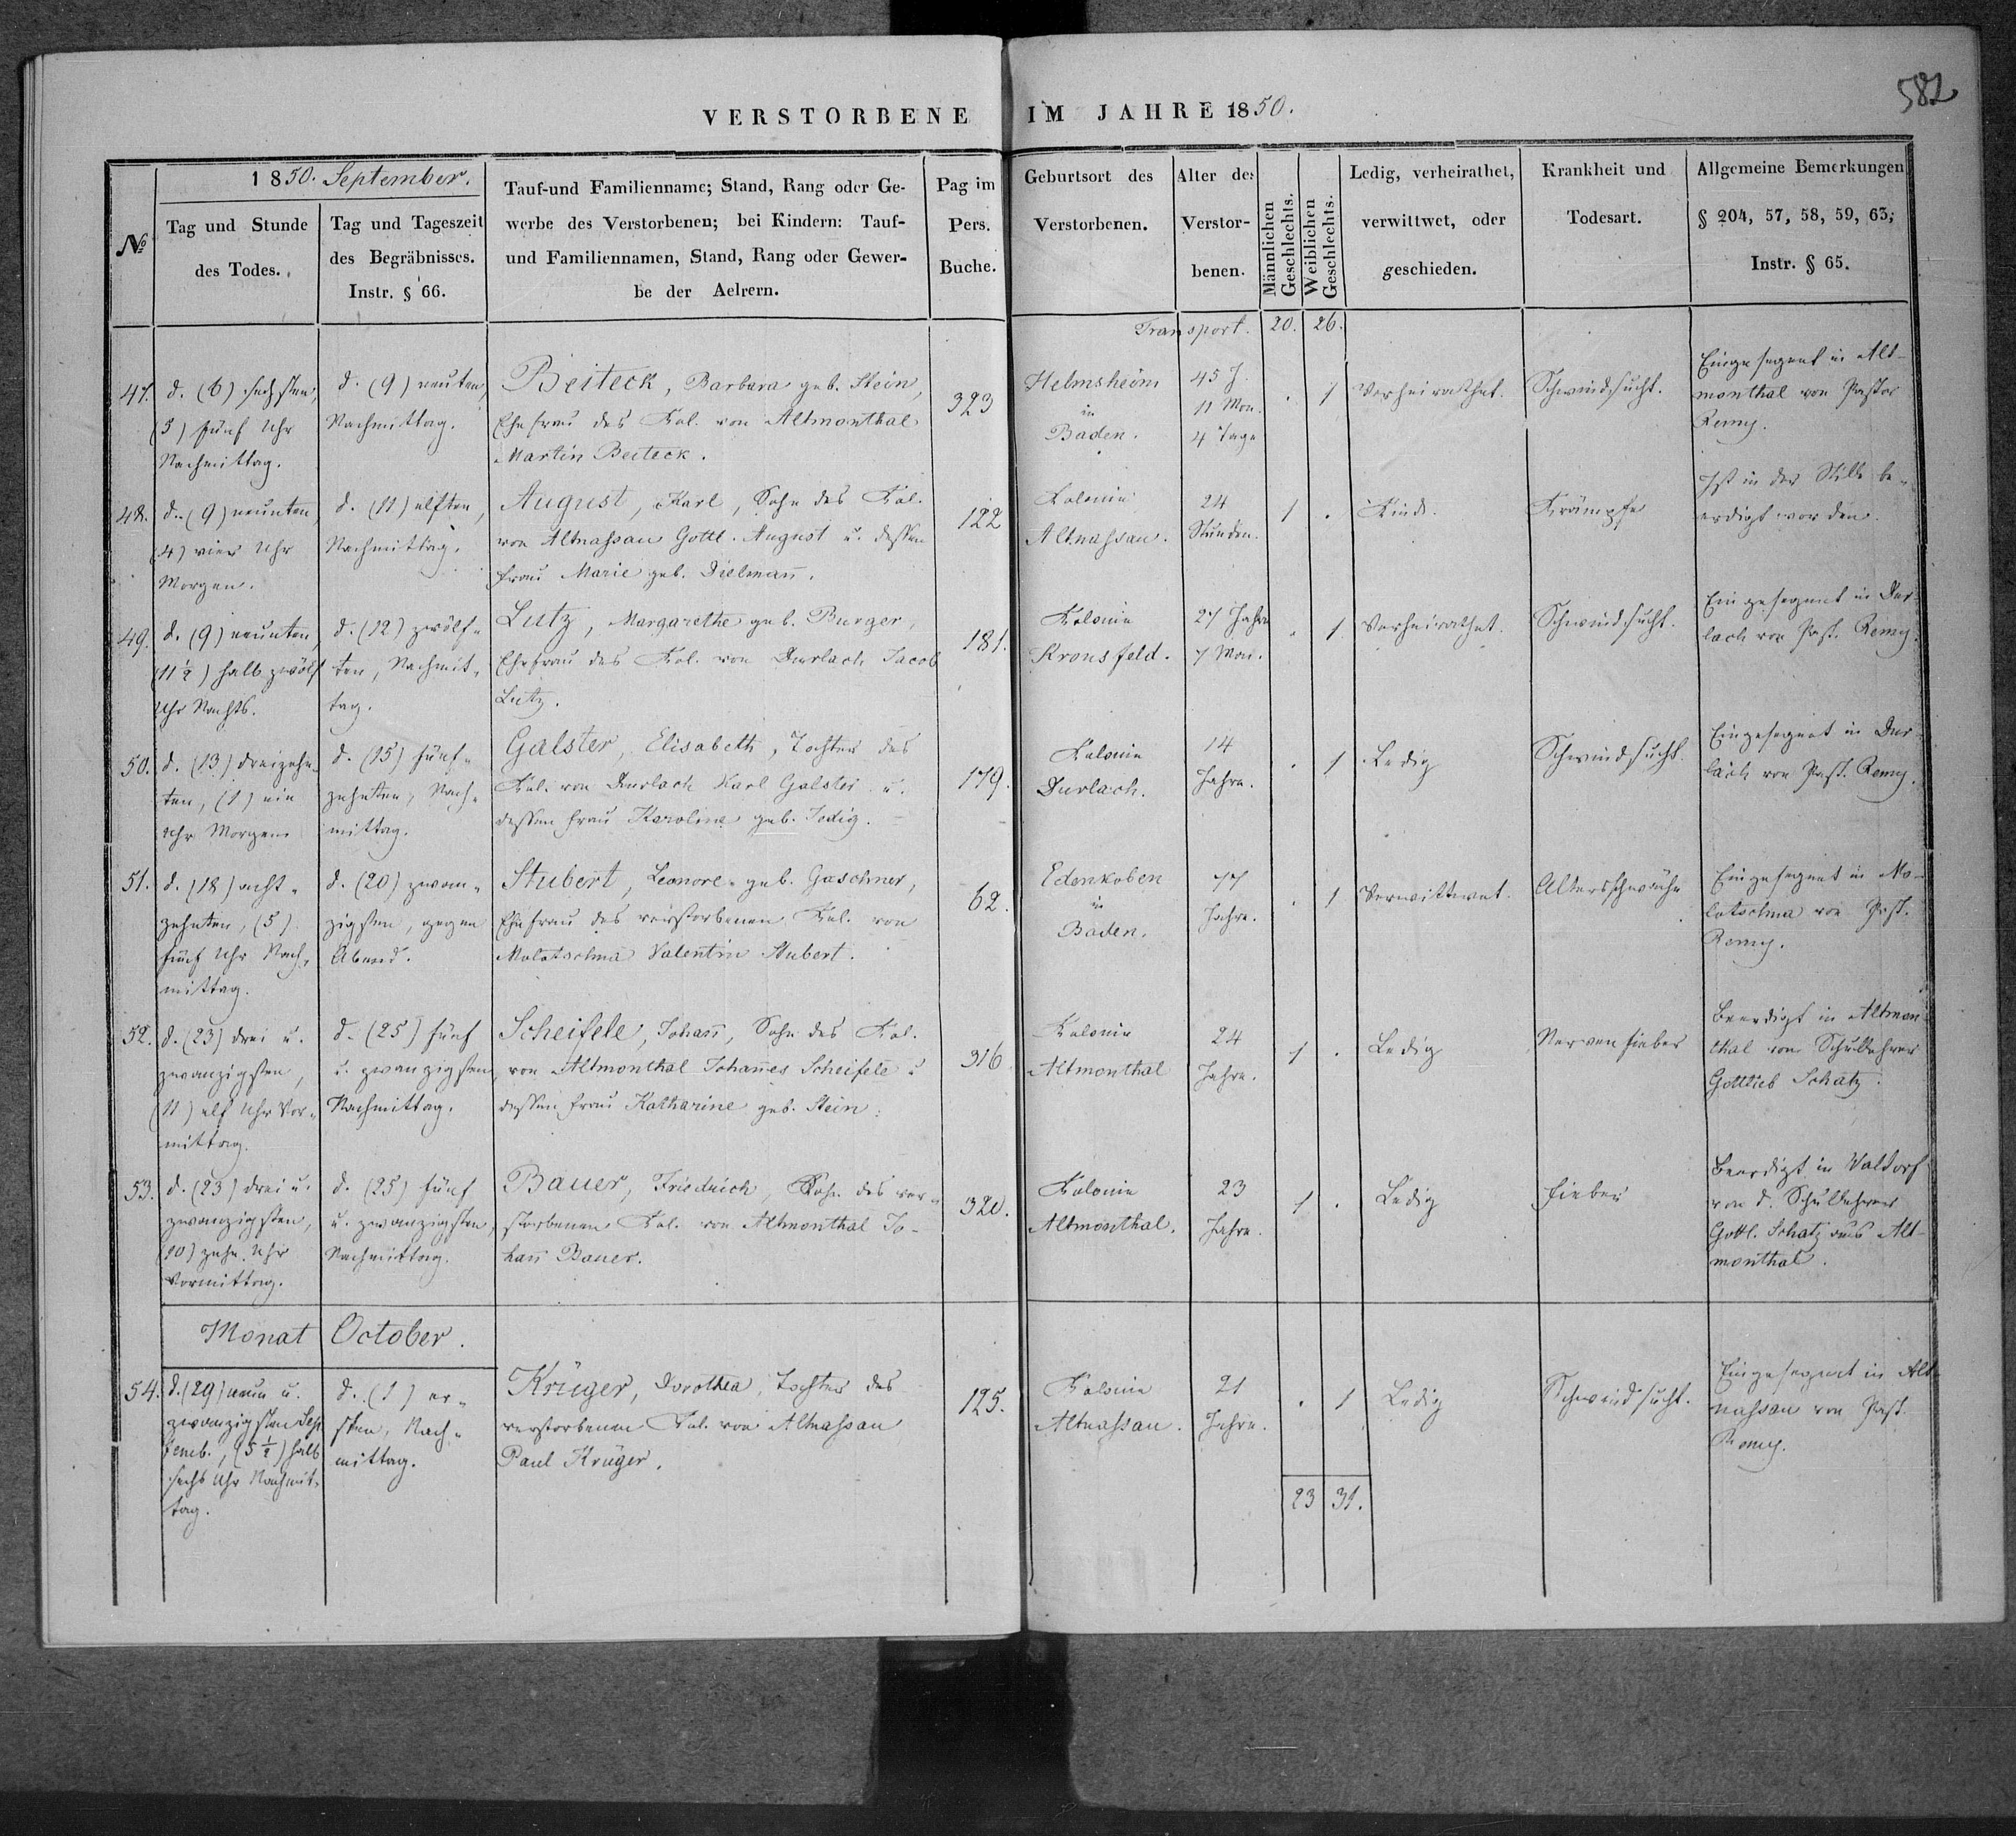 582
VERSTORBENE IM JAHRE 1850.
№
1850. September.
Tag und Stunde
des Todes.
Tag und Tageszeit
des Begräbnisses.
Instr. § 66.
Tauf-und Familienname; Stand, Rang oder Ge-
werbe des Verstorbenen; bei Kindern: Tauf-
und Familiennamen, Stand, Rang oder Gewer-
be der Aelrern.
Pag im
Pers.
Buche.
Geburtsort des
Verstorbenen.
Alter des
Verstor-
benen.
Männlichen
Geschlechts.
Weiblichen
Geschlechts.
Ledig, verheirathet,
verwittwet, oder
geschieden.
Krankheit und
Todesart.
Allgemeine Bemerkungen
§ 204, 57, 58, 59, 63;
Instr. § 65.
Transport. 20. 26.
47.
d. (6) sechsten,
(5) fünf Uhr
Nachmittag.
d. (9) neunten,
Nachmittag.
Beiteck, Barbara geb. Stein,
Ehefrau des Kol. von Altmonthal
Martin Beiteck.
323
Helmsheim
in
Baden.
45 J.
11 Mon.
4 Tage
. 1
Verheirathet.
Schwindsucht.
Eingesegnet in Alt-
monthal von Pastor
Remy.
48.
d. (9) neunten,
(4) vier Uhr
Morgen.
d. (11) elften,
Nachmittag.
August, Karl, Sohn des Kol.
von Altnassau Gottl. August u. dessen
Frau Marie geb. Dielmañ.
122
Kolonie
Altnassau.
24
Stunden.
1 .
Kind.
Krämpfe
Ist in der Stille be-
erdigt worden.
49.
d. (9) neunten,
(11½) halb zwölf
Uhr Nachts.
d. (12) zwölf-
ten, Nachmit-
tag.
Lutz, Margarethe geb. Burger,
Ehefrau des Kol. von Durlach Jacob
Lutz.
181.
Kolonie
Kronsfeld.
27 Jahre
7 Mon.
. 1
Verheirathet.
Schwindsucht.
Eingesegnet in Dur-
lach von Past. Remy.
50.
d. (13) dreizehn-
ten, (1) ein
Uhr Morgens
d. (15) fünf-
zehnten, Nach-
mittag.
Galster, Elisabeth, Tochter des
Kol. von Durlach Karl Galster u.
dessen Frau Karoline geb. Jedig.
179.
Kolonie
Durlach.
14
Jahre.
. 1
Ledig
Schwindsucht.
Eingesegnet in Dur-
lach von Past. Remy.
51.
d. (18) acht-
zehnten, (5)
fünf Uhr Nach-
mittag.
d. (20) zwan-
zigsten, gegen
Abend.
Stubert, Leonore geb. Gaschner,
Ehefrau des verstorbenen Kol. von
Molotschna Valentin Stubert.
62.
Edenkoben
in
Baden.
77
Jahre.
. 1
Verwittwet.
Altersschwäche
Eingesegnet in Mo-
lotschna von Past.
Remy.
52.
d. (23) drei u.
zwanzigsten,
(11) elf Uhr Vor-
mittag.
d. (25) fünf
u. zwanzigsten,
Nachmittag.
Scheifele, Johañ, Sohn des Kol.
von Altmonthal Johañes Scheifele u
dessen Frau Katharine geb. Stein.
316
Kolonie
Altmonthal
24
Jahre.
1 .
Ledig
Nervenfieber
Beerdigt in Altmon-
thal von Schullehrer
Gottlieb Schatz.
53.
d. (23) drei u.
zwanzigsten,
(10) zehn Uhr
Vormittag.
d. (25) fünf
u. zwanzigsten,
Nachmittag.
Bauer, Friedrich, Sohn des ver-
storbenen Kol. von Altmonthal Jo-
hañ Bauer.
320.
Kolonie
Altmonthal.
23
Jahre.
1 .
Ledig
Fieber
Beerdigt in Waldorf
von d. Schullehrer
Gottl. Schatz aus Alt-
monthal.
Monat October.
54.
d. (29) neun u.
zwanzigsten Sep
temb., (5½) halb
sechs Uhr Nachmit-
tag.
d. (1) er-
sten, Nach-
mittag.
Krüger, Dorothea, Tochter des
verstorbenen Kol. von Altnassau
Paul Krüger.
125.
Kolonie
Altnassau.
21
Jahre.
. 1
Ledig
Schwindsucht.
Eingesegnet in Alt-
nassau von Past.
Remy.
23 31.